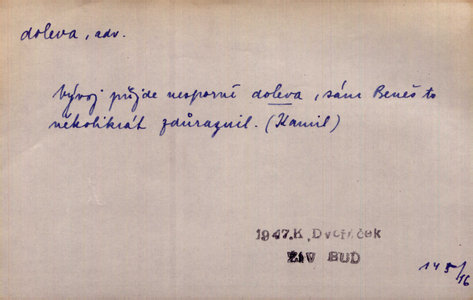 doleva, adv.
Vývoj půjde nesporně doleva, sám Beneš to
několikrát zdůraznil. (Kamil)
1947.K. Dvořáček
ŽIV BUD
145/16